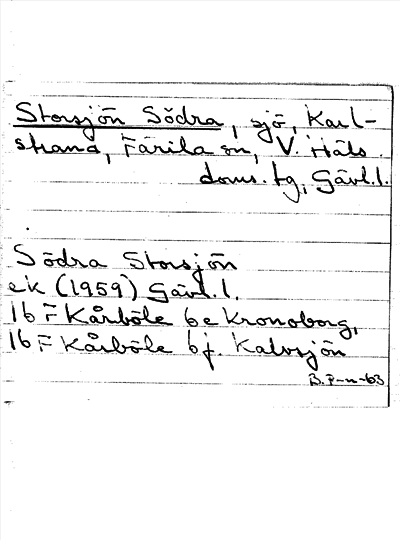 Storsjön Södra, sjö, Karl-
strand, Färila sn, V. Häls.
doms. tg, Gävl.l.
Södra Storsjön
ek (1959) Gävl.l.
16 F Kårböle 6e Kronoborg,
16 F Kårböle 6f. Kalvsjön
B. P-n-63